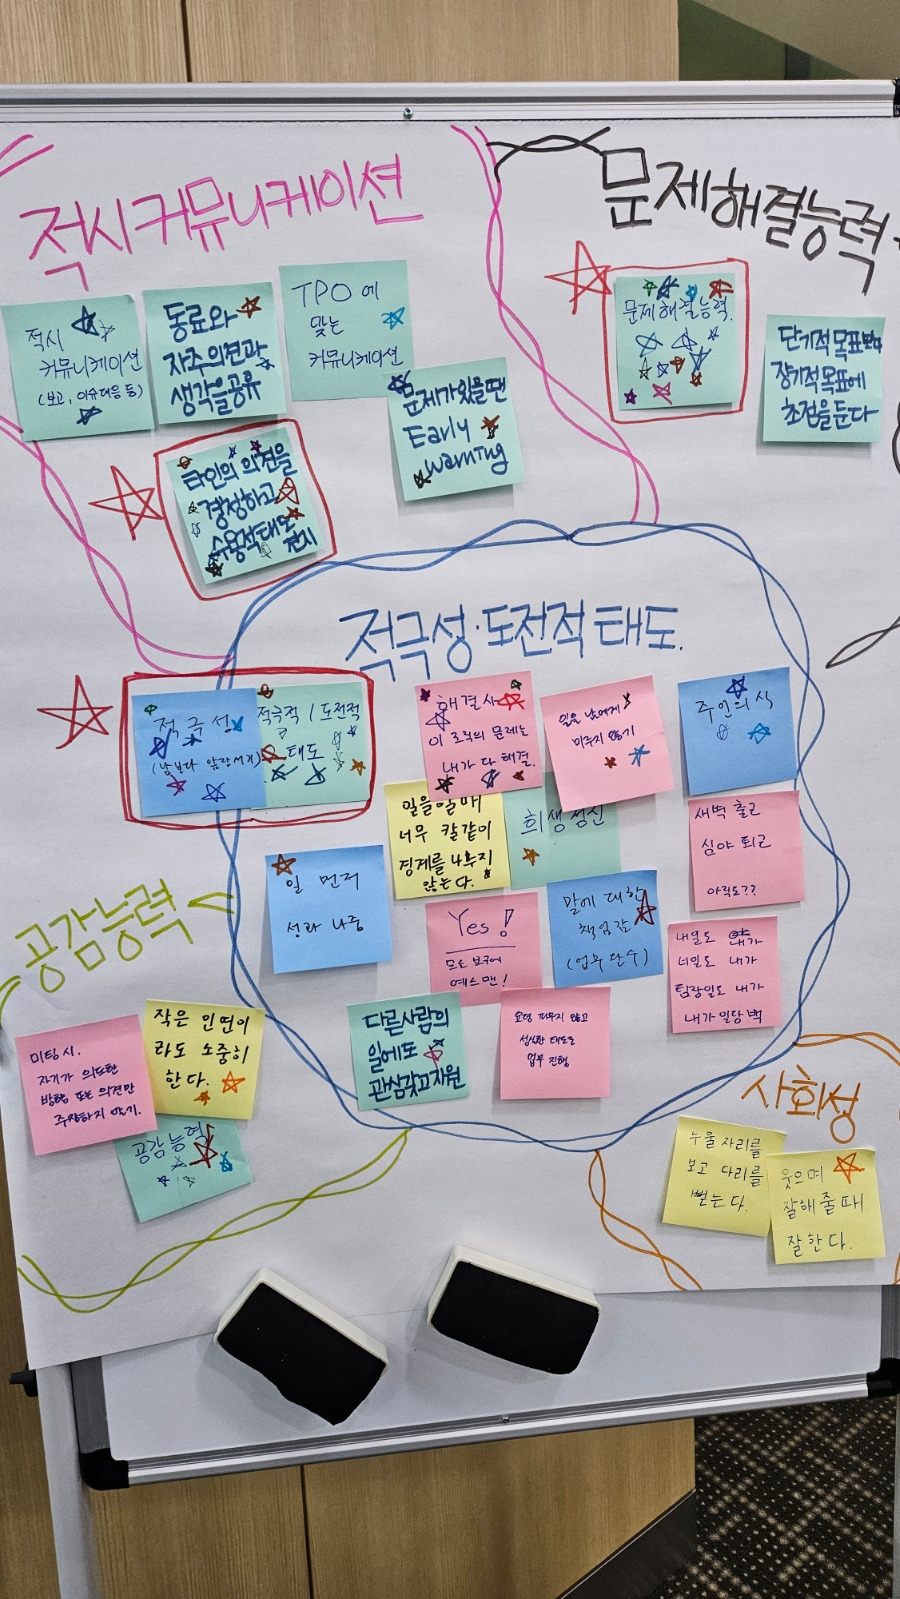 적시커뮤니케이션
적시
커뮤니케이션
(보고, 이슈대응 등)
동료와
자주 의견과
생각을 공유
TPO에
맞는
커뮤니케이션
문제가 있을 땐
Early
warning
타인의 의견을
경청하고
수용적태도
문제해결능력
문제해결능력.
단기적 목표보다
장기적 목표에
초점을 둔다
적극성·도전적 태도.
적극성
(남보다 앞장서기)
적극적 / 도전적
태도
해결사
이 조직의 문제는
내가 다 해결.
일을 남에게
미루지 않기
주인의식
일을 할 때
너무 칼같이
경계를 나누지
않는다.
희생정신
새벽 출근
심야 퇴근
아직도??
일 먼저
성과 나중
Yes!
예스맨!
말에 대한
책임감
(업무 완수)
내일도 내가
너일도 내가
팀장일도 내가
내가 일당백
다른사람의
일에도
관심갖고 지원
성실한 태도로
업무 진행
공감능력
미팅시.
자기가 의도한
방향 또는 의견만
주장하지 않기.
작은 인연이
라도 소중히
한다.
공감능력
사회성
누울 자리를
보고 다리를
뻗는다.
웃으며
잘해줄때
잘한다.